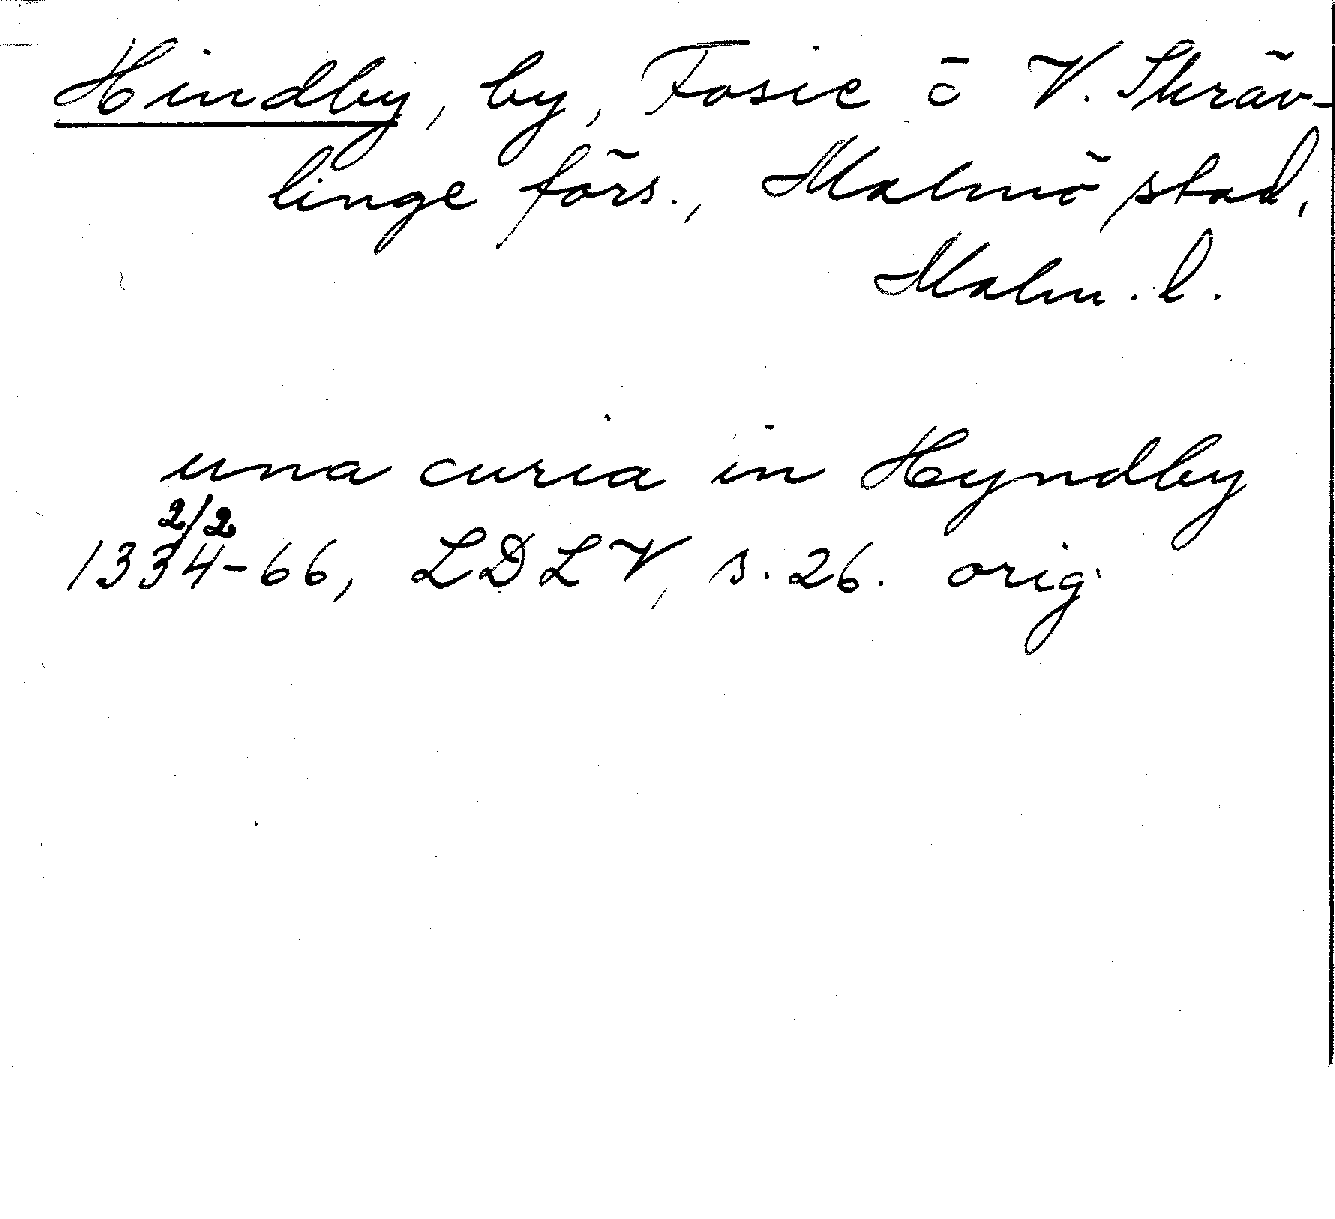 Hindby, by, Fosie ö V. Skräv-
linge förs., Malmö stad,
Malm. l.
una curia in Hyndby
2/2
1334-66, LDLV, s. 26. orig.